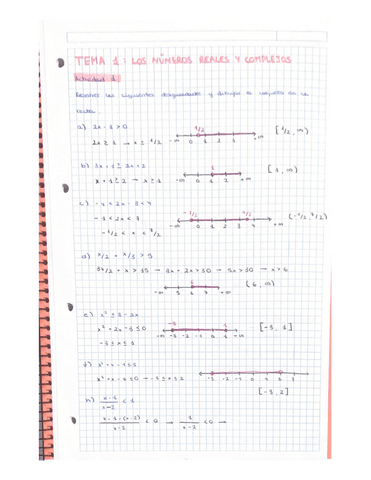 TEMA 1: LOS NÚMEROS REALES Y COMPLEJOS
Actividad 1
Resolver las siguientes desigualdades y dibujar el conjunto en la
recta.
a) 2x - 1 > 0
2x ≥ 1 → x ≥ 1/2
-∞ 0 1 2 3 +∞
1/2
[1/2, ∞)
b)
x + 1 ≥ 2 → x ≥ 1
[1, ∞)
c)
-1 < 2x < 7
-1/2 < x < 7/2
(-1/2, 7/2)
d) x/2 + x/3 > 5
→ 5x > 30 → x > 6
(6, ∞)
e) x² ≤ 3 - 2x
x² + 2x - 3 ≤ 0
-3 ≤ x ≤ 1
[-3, 1]
f)
-3 ≤ x ≤ 2
[-3, 2]
h) x-1/x-2 < 1
x-1-(x-2)/x-2 < 0 → 1/x-2 < 0 →